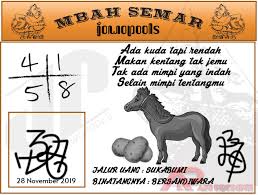 MBAH SEMAR
fornopools
Ada kuda tapi rendah
Makan kentang tak jemu
Tak ada mimpi yang indah
Selain mimpi tentangmu
4 1
5 8
28 November 2019
JALUR UANG : SUKABUMI
BINATANGNYA : BERSANDIWARA